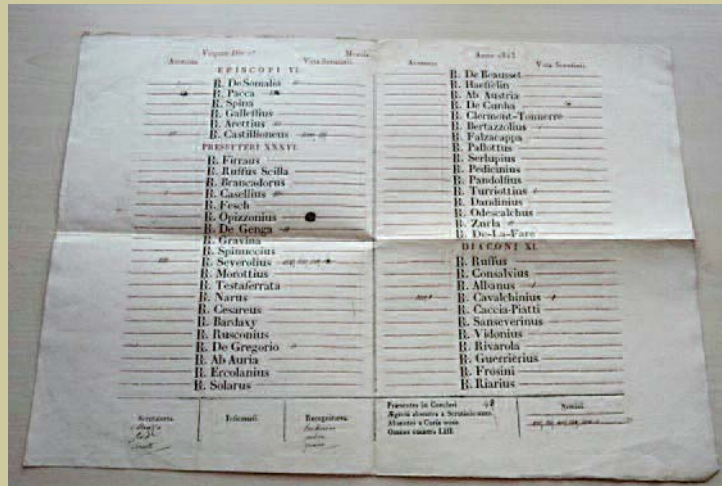 Vespere Die
Mensis
Accessus
Vota Scrutinii
EPISCOPI VI.
R. De Somalia
R. Pacca
R. Spina
R. Galleffius
R. Arettius
R. Castillioneus
PRESBYTERI XXXVI.
R. Firraus
R. Ruffus Scilla
R. Brancadorus
R. Casellius
R. Fesch
R. Opizzonius
R. De Genga
R. Gravina
R. Spinuccius
R. Severolius
R. Morottius
R. Testaferrata
R. Narus
R. Cesareus
R. Bardaxy
R. Rusconius
R. De Gregorio
R. Ab Auria
R. Ercolanius
R. Solarus
Scrutatores
Infirmarii
Recognitores
Anno 1823
Accessus
Vota Scrutinii
R. De Beausset
R. Haefielin
R. Ab Austria
R. De Cunha
R. Clermont-Tonnerre
R. Bertazzolius
R. Falzacappa
R. Pallottus
R. Serlupius
R. Pedicinius
R. Pandolfius
R. Turriottius
R. Dandinius
R. Odescalchus
R. Zurla
R. De-La-Fare
DIACONI XI.
R. Ruffus
R. Consalvius
R. Albanus
R. Cavalchinius
R. Caccia-Piatti
R. Sanseverinus
R. Vidonius
R. Rivarola
R. Guerrierius
R. Frosini
R. Riarius
Præsentes in Conclavi 48
Absentes a Curia
Omnes numero LIII.
Nemini